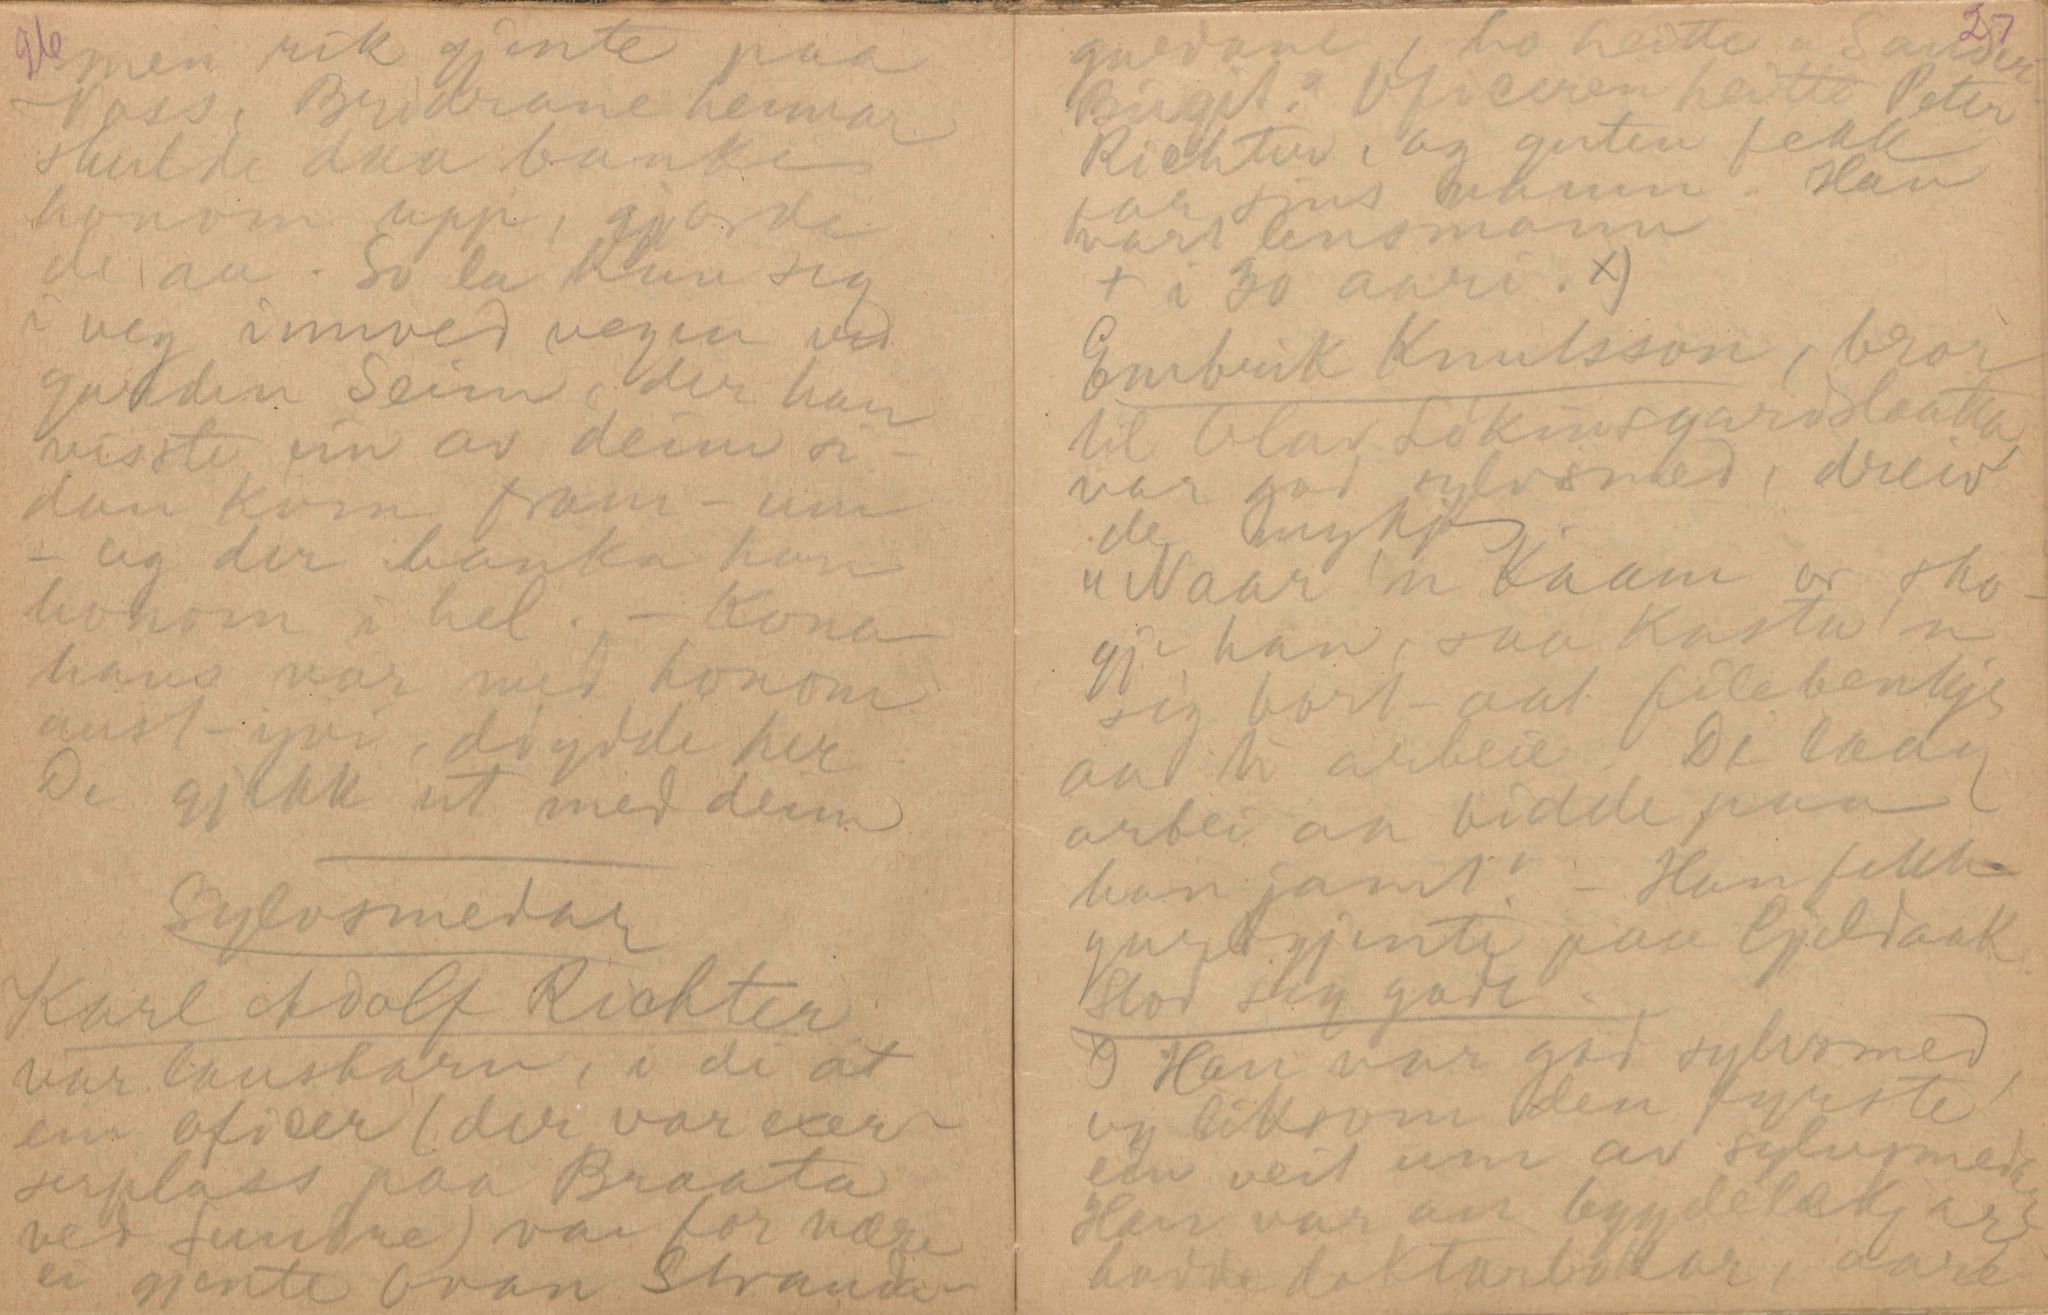 26
men rik gjente paa
Voss. Brødrane hennar
skulde daa banke
honom upp, gjorde
de aa. So la han sig
i veg innved vegen ved
garden Seim, der han
visste ein av deim si-
dan kom fram-um
- og der banka han
honom i hel. - Kona
hans var med honom
aust-yvi, döydde her
De gjekk ut med deim
Sylvsmedar
Karl Adolf Richter
var lausbarn, i di at
ein oficer (der var exer-
serplass paa Braata
ved Sundre) var for nære
ei gjente ovan Strande-
27
gardane, ho heitte "Sander-
Birgit." Oficeren heitte Peter
Richter, og guten fekk
far sins namn. Han
vart lensmann
+ i 30 aari. x)
Embrik Knutsson, bror
til Olav Lökinsgardslaatta,
var god sylvsmed, dreiv
de mykje.
"Naar 'n kaam or sko-
gje han, saa kasta 'n
sig bort-aat filebenkje
aa ti arbeie. De laag
arbei aa bidde paa
han jamt." - Han fekk
gardgjente paa Gjeldaak
Stod seg godt.
x) Han var god sylvsmed,
og liksom den fyrste
ein veit um av sylvsmedar
Han var an bygdelækjare
hadde doktarbökar, aare